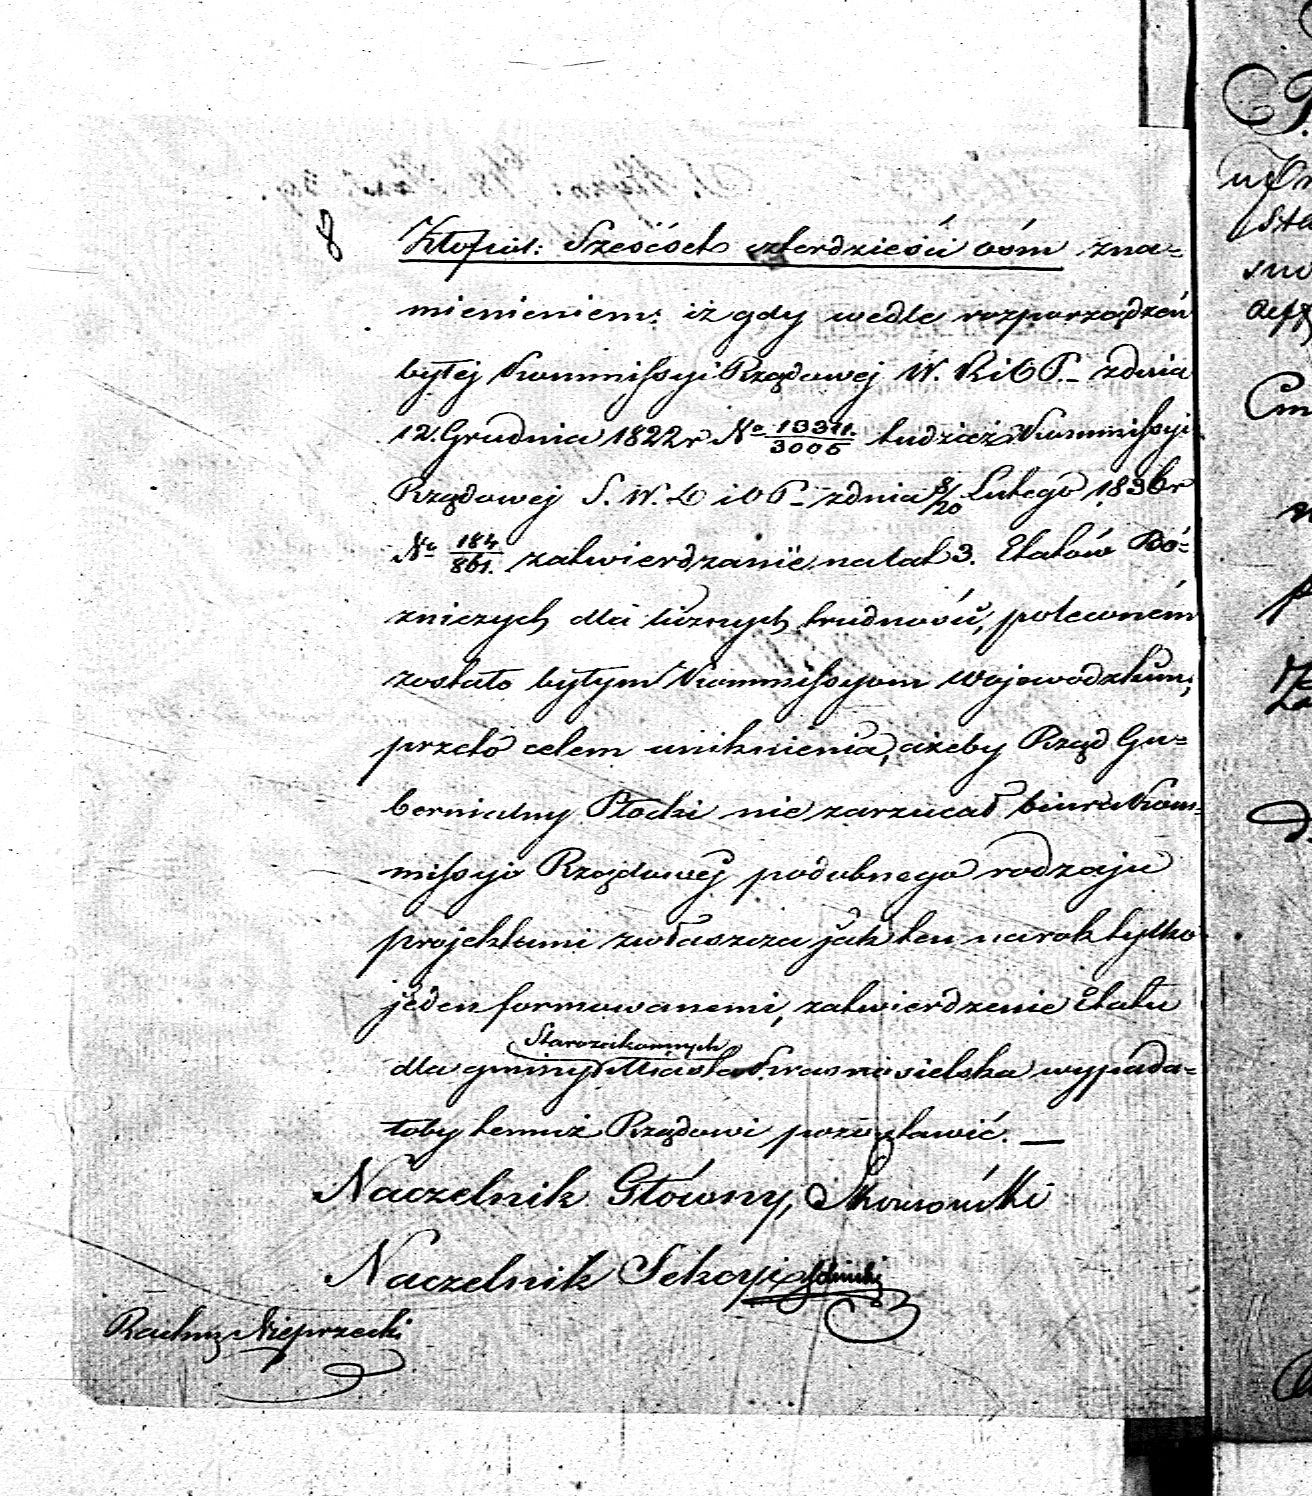 8
Złotpol: Sześćset czterdzieści ośm zna-
mienieniem: iż gdy wedle rozporządzeń
byłej Kommissyi Rządowej W. R i O P. zdnia
12. Grudnia 1822 r No 13311./3006 tudzież Kommissyi
Rządowej S. W. D i O P. zdnia 8/20 Lutego 1836 r
No 184/861. zatwierdzanie na lat 3. Etatów Bó-
zniczych dla licznych trudności, poleconém
zostało byłym Kommissyom Wojewódzkim,
przeto celem uniknienia, ażeby Rząd Gu-
bernialny Płocki nie zarzucał biura Kom-
missyi Rządowej podobnego rodzaju
projektami zwłaszcza jak ten na rok tylko
jeden formowanemi, zatwierdzenie Etatu
Starozakonnych
dla gminy Miasta Krasnosielska wypada-
łoby temuż Rządowi pozostawić. —
Naczelnik Główny,
Naczelnik Sekcyi
Rachm Nieprzecki